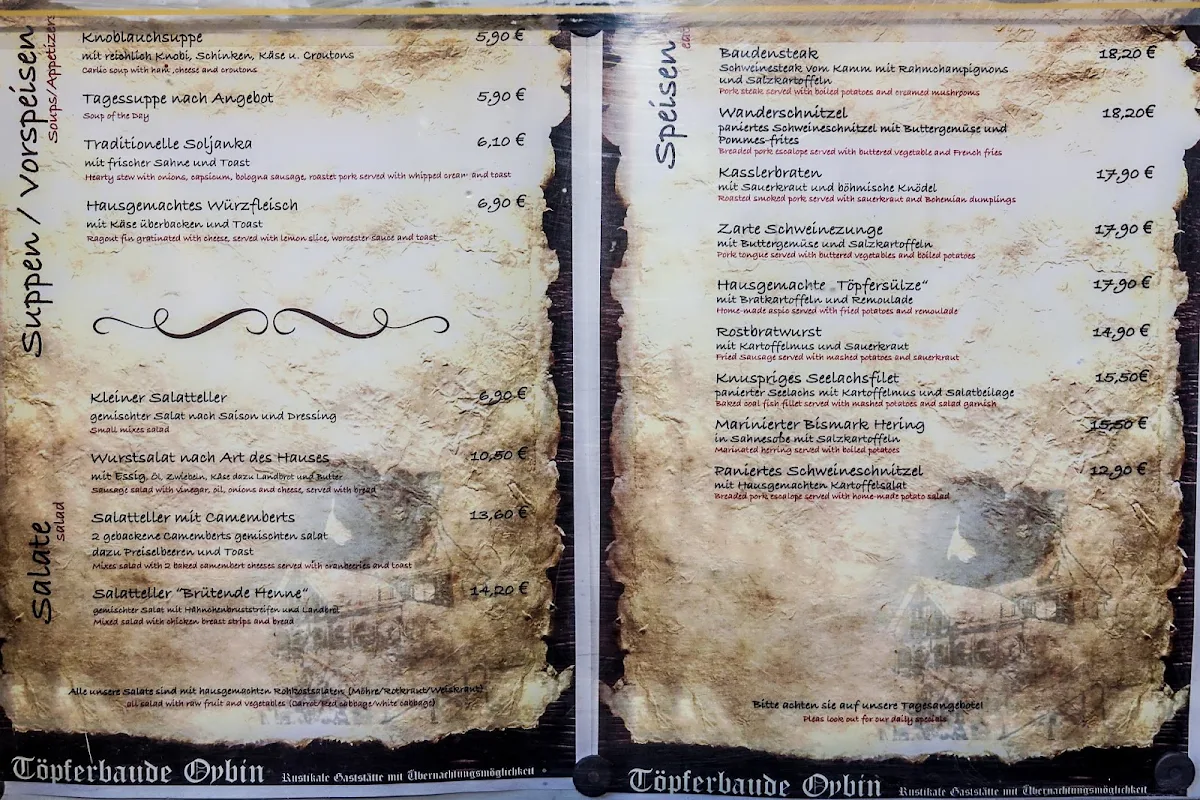 Suppen / Vorspeisen
Soups/Appetizers
Knoblauchsuppe 5,90 €
mit reichlich Knobi, Schinken, Käse u. Croutons
Garlic soup with ham ,cheese and croutons
Tagessuppe nach Angebot 5,90 €
Soup of the Day
Traditionelle Soljanka 6,10 €
mit frischer Sahne und Toast
Hearty stew with onions, capsicum, bologna sausage, roastet pork served with whipped cream and toast
Hausgemachtes Würzfleisch 6,90 €
mit Käse überbacken und Toast
Ragout fin gratinated with cheese, served with lemon slice, worcester sauce and toast
Salate
salad
Kleiner Salatteller 6,90 €
gemischter Salat nach Saison und Dressing
Small mixes salad
Wurstsalat nach Art des Hauses 10,50 €
mit Essig, Öl, Zwiebeln, Käse dazu Landbrot und Butter
Sausage salad with vinegar, oil, onions and cheese, served with bread
Salatteller mit Camemberts 13,60 €
2 gebackene Camemberts gemischten salat
dazu Preiselbeeren und Toast
Mixes salad with 2 baked camembert cheeses served with cranbeeries and toast
Salatteller "Brütende Henne" 14,20 €
gemischter Salat mit Hähnchenbruststreifen und Landbrot
Mixed salad with chicken breast strips and bread
Alle unsere Salate sind mit hausgemachten Rohkostsalaten (Möhre/Rotkraut/Weiskraut)
all salad with raw fruit and vegetables (Carrot/Red cabbage/white cabbage)
Töpferbaude Oybin Rustikale Gaststätte mit Übernachtungsmöglichkeit
Speisen
Baudensteak 18,20 €
Schweinesteak vom Kamm mit Rahmchampignons
und Salzkartoffeln
Pork steak served with boiled potatoes and creamed mushrooms
Wanderschnitzel 18,20€
paniertes Schweineschnitzel mit Buttergemüse und
Pommes-frites
Breaded pork escalope served with buttered vegetable and French fries
Kasslerbraten 17,90 €
mit Sauerkraut und böhmische Knödel
Roasted smoked pork served with sauerkraut and Bohemian dumplings
Zarte Schweinezunge 17,90 €
mit Buttergemüse und Salzkartoffeln
Pork tongue served with buttered vegetables and boiled potatoes
Hausgemachte "Töpfersülze" 17,90 €
mit Bratkartoffeln und Remoulade
Home-made aspic served with fried potatoes and remoulade
Rostbratwurst 14,90 €
mit Kartoffelmus und Sauerkraut
Fried Sausage served with mashed potatoes and sauerkraut
Knuspriges Seelachsfilet 15,50€
panierter Seelachs mit Kartoffelmus und Salatbeilage
Baked coal fish fillet served with mashed potatoes and salad garnish
Marinierter Bismark Hering 15,50 €
in Sahnesoße mit Salzkartoffeln
Marinated herring served with boiled potatoes
Paniertes Schweineschnitzel 12,90 €
mit Hausgemachten Kartoffelsalat
Breaded pork escalope served with home-made potato salad
Bitte achten sie auf unsere Tagesangebote!
Pleas look out for our daily specials
Töpferbaude Oybin Rustikale Gaststätte mit Übernachtungsmöglichkeit